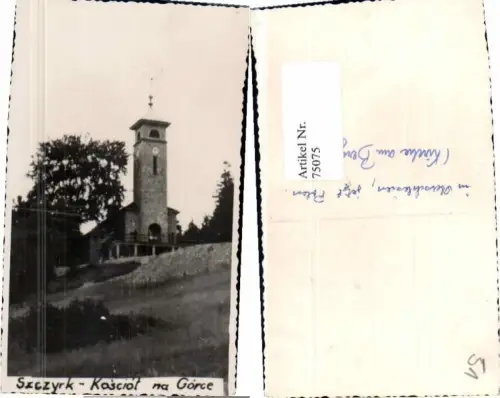 Szczyrk - Kościół na Górce
Artikel Nr.
75075
(Kirche am Berg)
in Oberschlesien, jetzt Polen
51